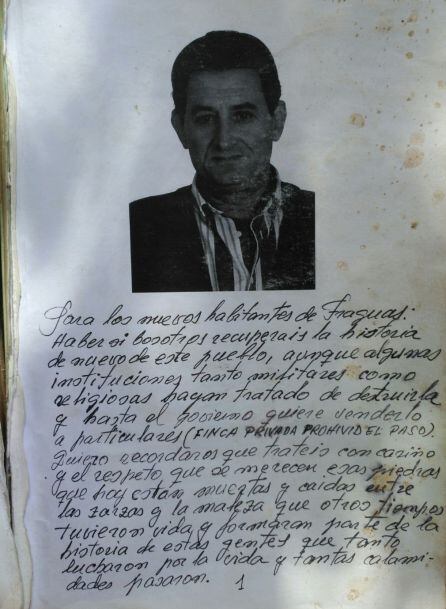 Para los nuevos habitantes de Fraguas:
Haber si bosotros recuperais la historia
de nuevo de este pueblo, aunque algunas
instituciones tanto militares como
religiosas hayan tratado de destruirla
y hasta el govierno quiere venderlo
a particulares (FINCA PRIVADA PROHIVIDO EL PASO).
Quiero recordaros que trateis con cariño
y el respeto que se merecen esas piedras
que hoy estan muertas y caidas entre
las zarzas y la maleza que otros tiempos
tuvieron vida y formaran parte de la
historia de estas gentes que tanto
lucharon por la vida y tantas calami-
dades pasaron. 1